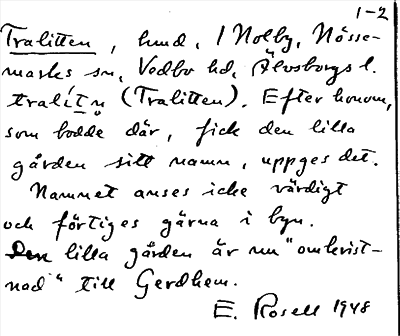 1-2
Tralitten, hmd, 1 Nolby, Nösse-
marks sn, Vedbo hd, Älvsborgs l.
tralítn̥ (Tralitten). Efter honom,
som bodde där, fick den lilla
gården sitt namn, uppges det.
Namnet anses icke värdigt
och förtiges gärna i byn.
Den lilla gården är nu "omkrist-
nad" till Gerdhem.
E. Rosell 1948